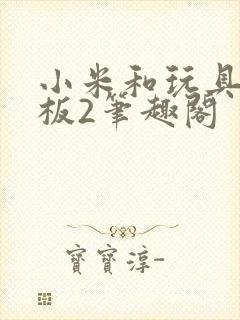 小米和玩具
板2筆趣閣
寶寶淳-